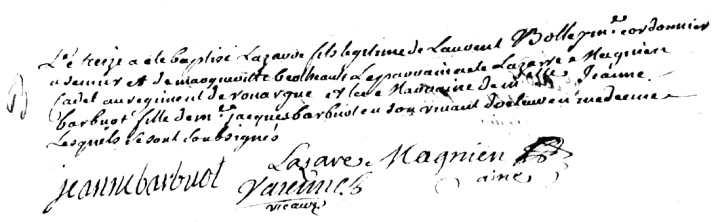 Le treize a ete baptisé Lazare fils legitime de Laurent Bolle me cordonnier
a semur et de margueritte le parrain a ete Lazarre Magnien
cadet au regiment de rouargue et la Maraine demelle Jeanne
barbuot fille de mr jacques barbuot en son vivant docteur en medecine
Lesquels se sont soubsignés
Lazare Magnien
jeanne barbuot
aine
Varenne
vicaire
B